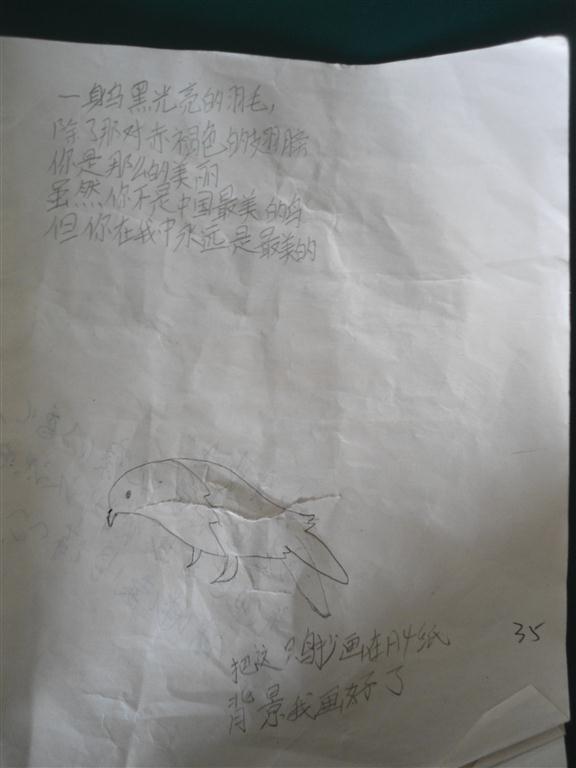 一身乌黑光亮的羽毛，
除了那对赤褐色的翅膀
你是那么的美丽
虽然你不是中国最美的鸟
但你在我中永远是最美的
把这只鸟抄画在A4纸
背景我画好了
35